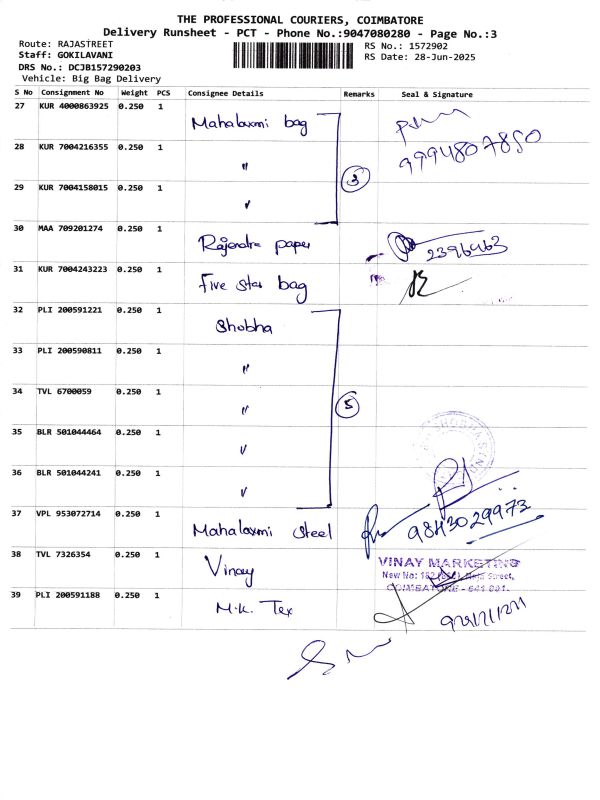 THE PROFESSIONAL COURIERS, COIMBATORE
Delivery Runsheet - PCT - Phone No.:9047080280 - Page No.:3
Route: RAJASTREET
RS No.: 1572902
Staff: GOKILAVANI
RS Date: 28-Jun-2025
DRS No.: DCJB157290203
Vehicle: Big Bag Delivery
S No Consignment No Weight PCS Consignee Details Remarks Seal & Signature
27 KUR 4000863925 0.250 1 Mahalaxmi bag
28 KUR 7004216355 0.250 1 〃 9994807850
29 KUR 7004158015 0.250 1 〃 3
30 MAA 709201274 0.250 1 Rajendra paper 2396463
31 KUR 7004243223 0.250 1 Five Star bag
32 PLI 200591221 0.250 1 Shobha
33 PLI 200590811 0.250 1 〃
34 TVL 6700059 0.250 1 〃 5
35 BLR 501044464 0.250 1 〃
36 BLR 501044241 0.250 1 〃
37 VPL 953072714 0.250 1 Mahalaxmi Steel 9843029973
38 TVL 7326354 0.250 1 Vinay VINAY MARKETING
New No: Raja Street,
COIMBATORE - 641 001.
39 PLI 200591188 0.250 1 M.K. Tex